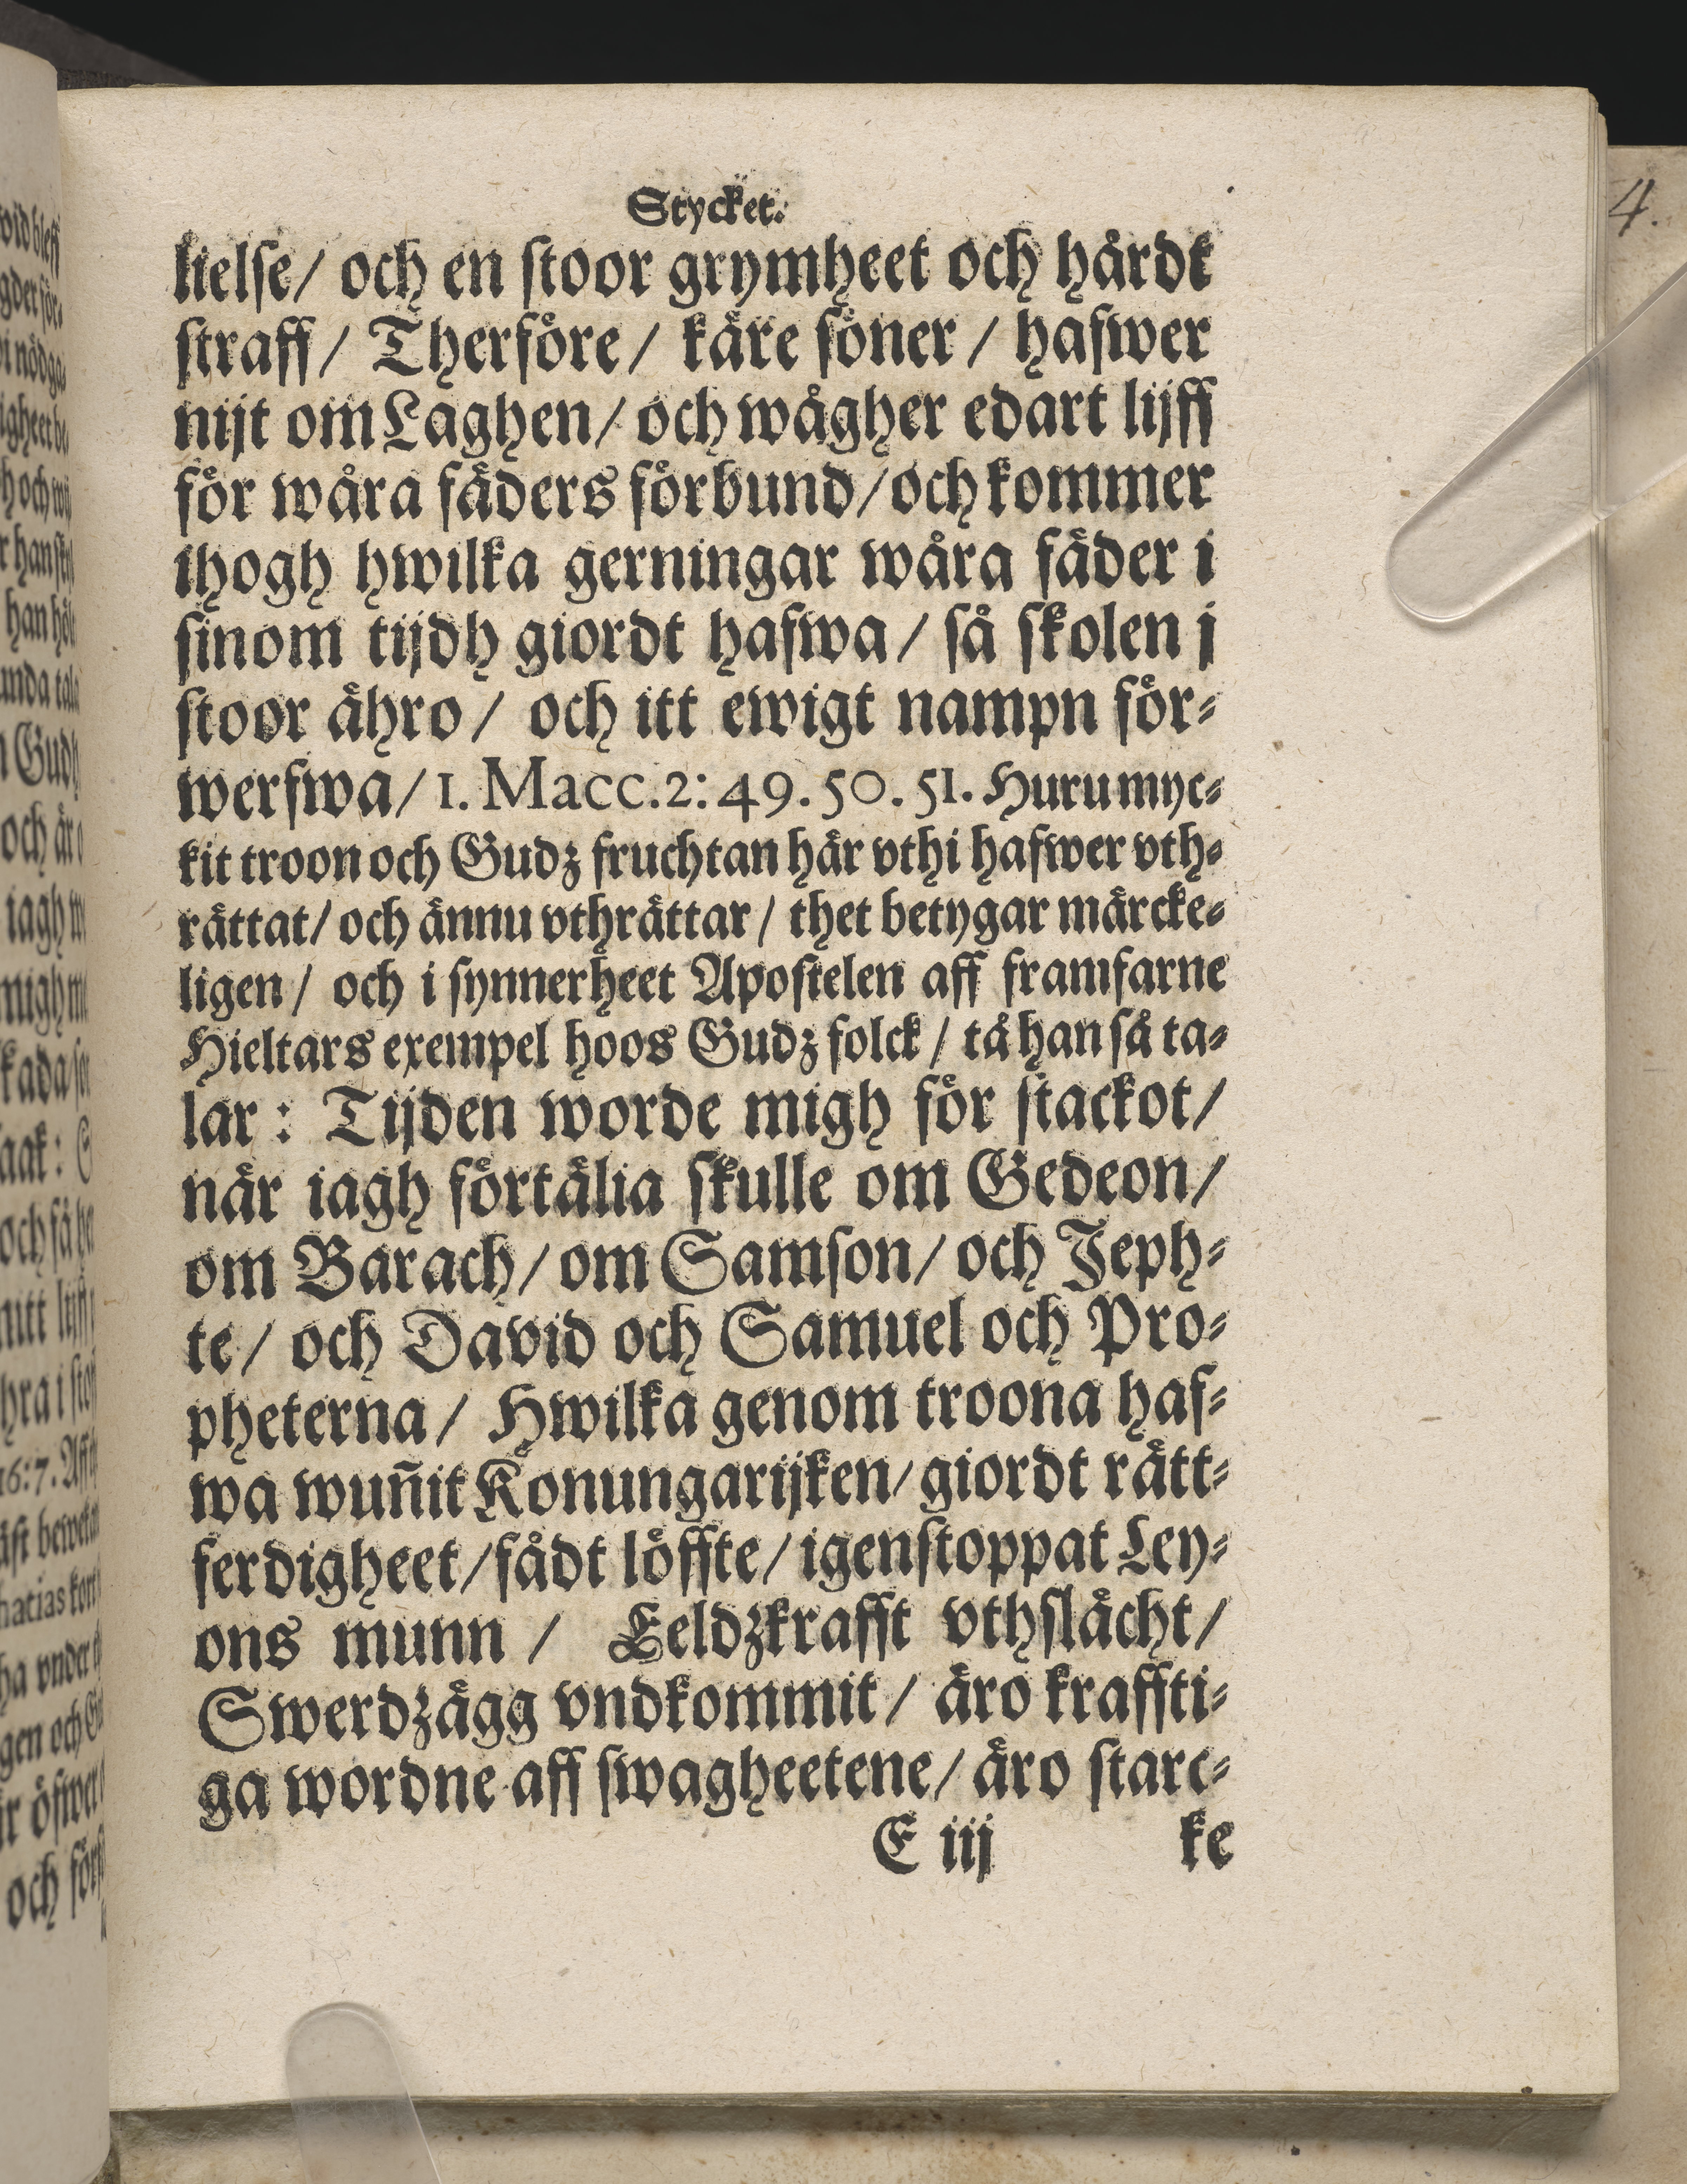 Stycket.
kielse/ och en stoor grymheet och hårdt
straff/ Therföre/ käre söner/ hafwer
nijt om Laghen/ och wågher edart lijff
för wåra fäders förbund/och kommer
ihogh hwilka gerningar wåra fäder i
sinom tijdh giordt hafwa/ så skolen j
stoor ähro/ och itt ewigt nampn för⸗
werfwa/ 1. Macc.2:49.50.51. Huru myc⸗
kit troon och Gudz fruchtan här vthi hafwer vth⸗
rättat/ och ännu vthrättar/ thet betygar märcke⸗
ligen/ och i synnerheet Apostelen aff framfarne
Hieltars exempel hoos Gudz folck/ tå han så ta⸗
lar: Tijden worde migh för stackot/
när iagh förtälia skulle om Gedeon/
om Barach/ om Samson/ och Jeph⸗
te/ och David och Samuel och Pro⸗
pheterna/ Hwilka genom troona haf⸗
wa wuñit Konungarijken/ giordt rätt⸗
ferdigheet/fådt löffte/ igenstoppat Ley⸗
ons munn/ Eeldzkrafft vthslächt/
Swerdzägg vndkommit/ äro kraffti⸗
ga wordne aff swagheetene/ äro starc⸗
E iij ke
4.